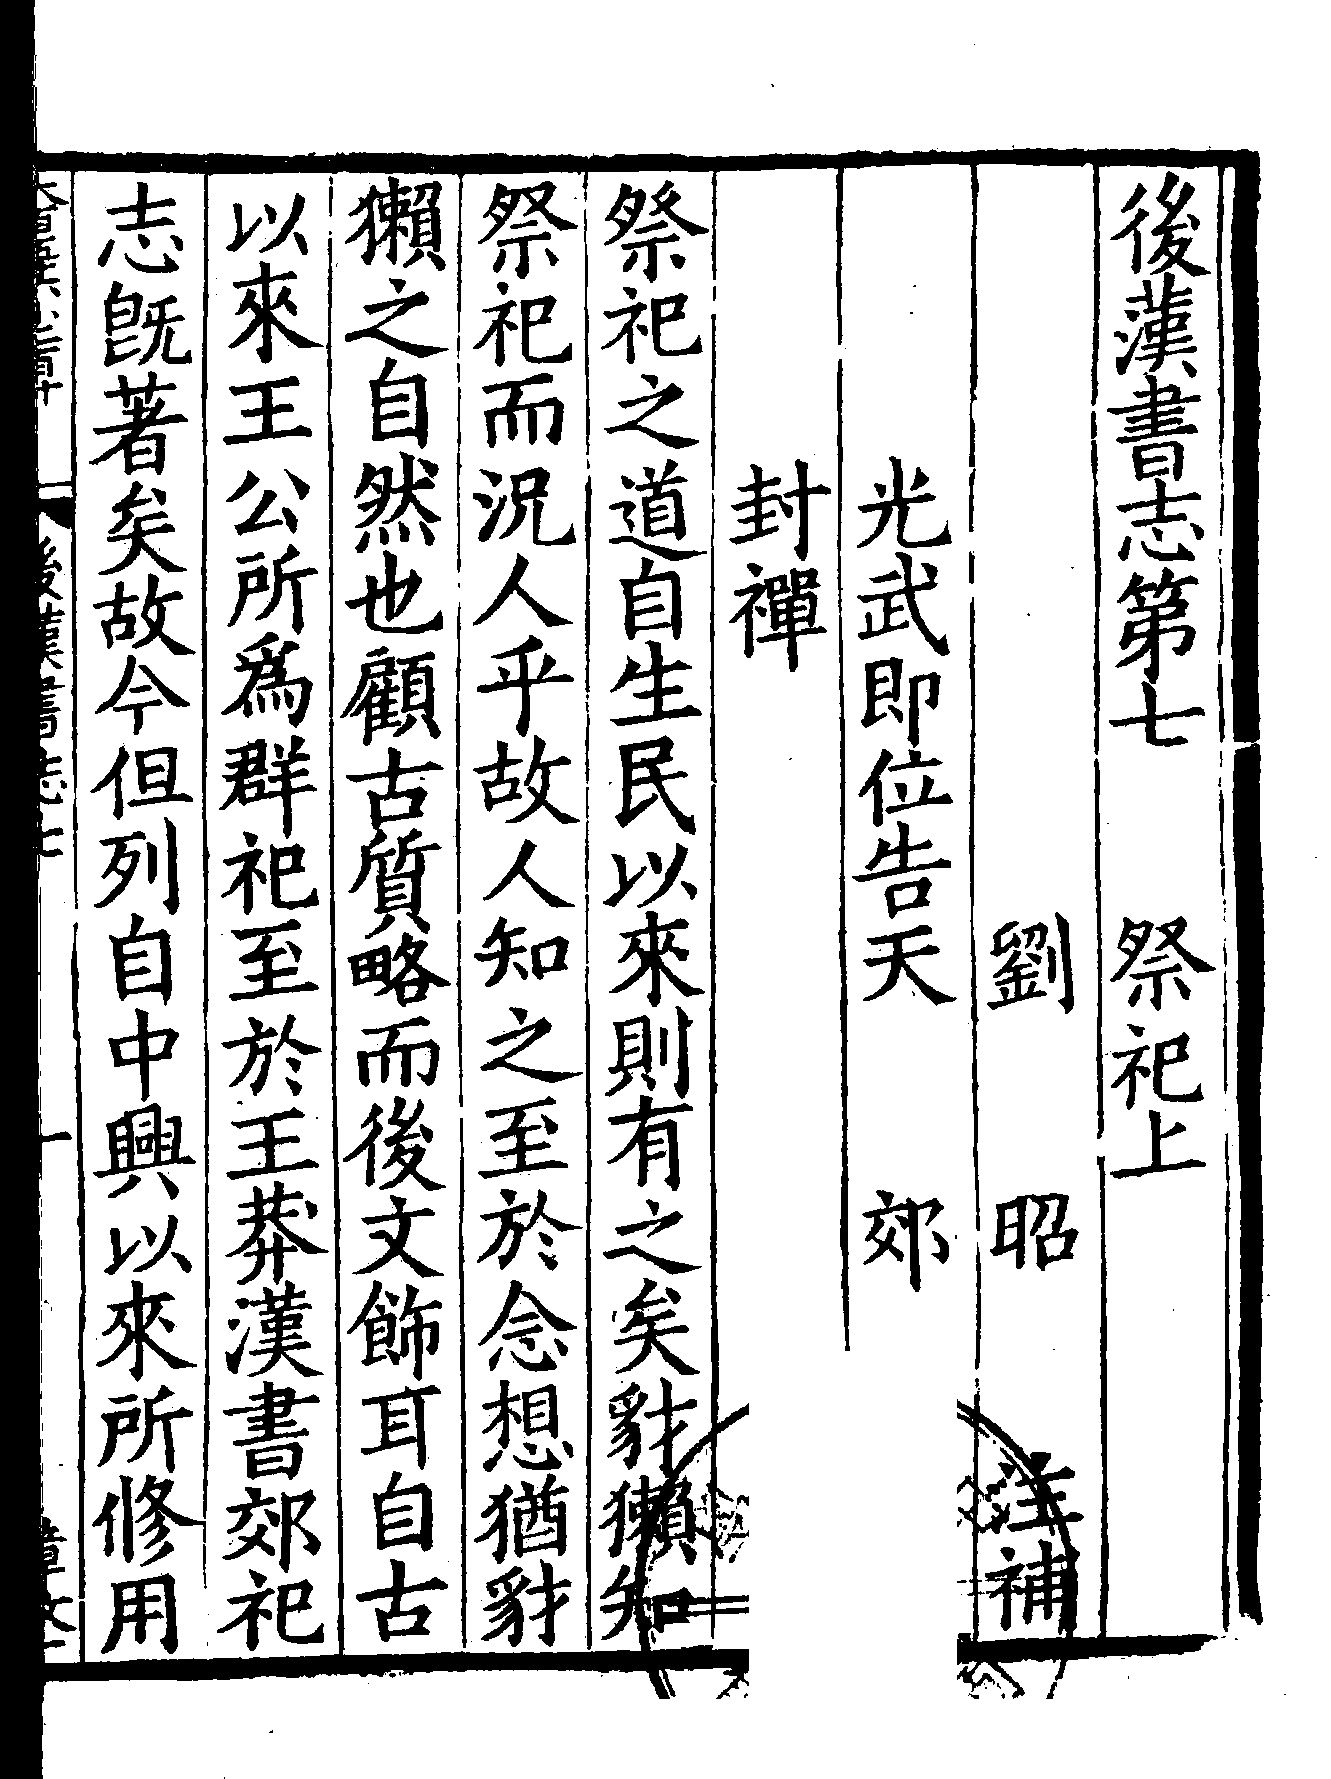 後漢書志第七　祭祀上
劉　昭　注補
光武即位告天　郊
封禪
祭祀之道自生民以來則有之矣豺獺知
祭祀而況人乎故人知之至於念想猶豺
獺之自然也顧古質略而後文飾耳自古
以來王公所爲群祀至於王莽漢書郊祀
志旣著矣故今但列自中興以來所修用
後漢書志七